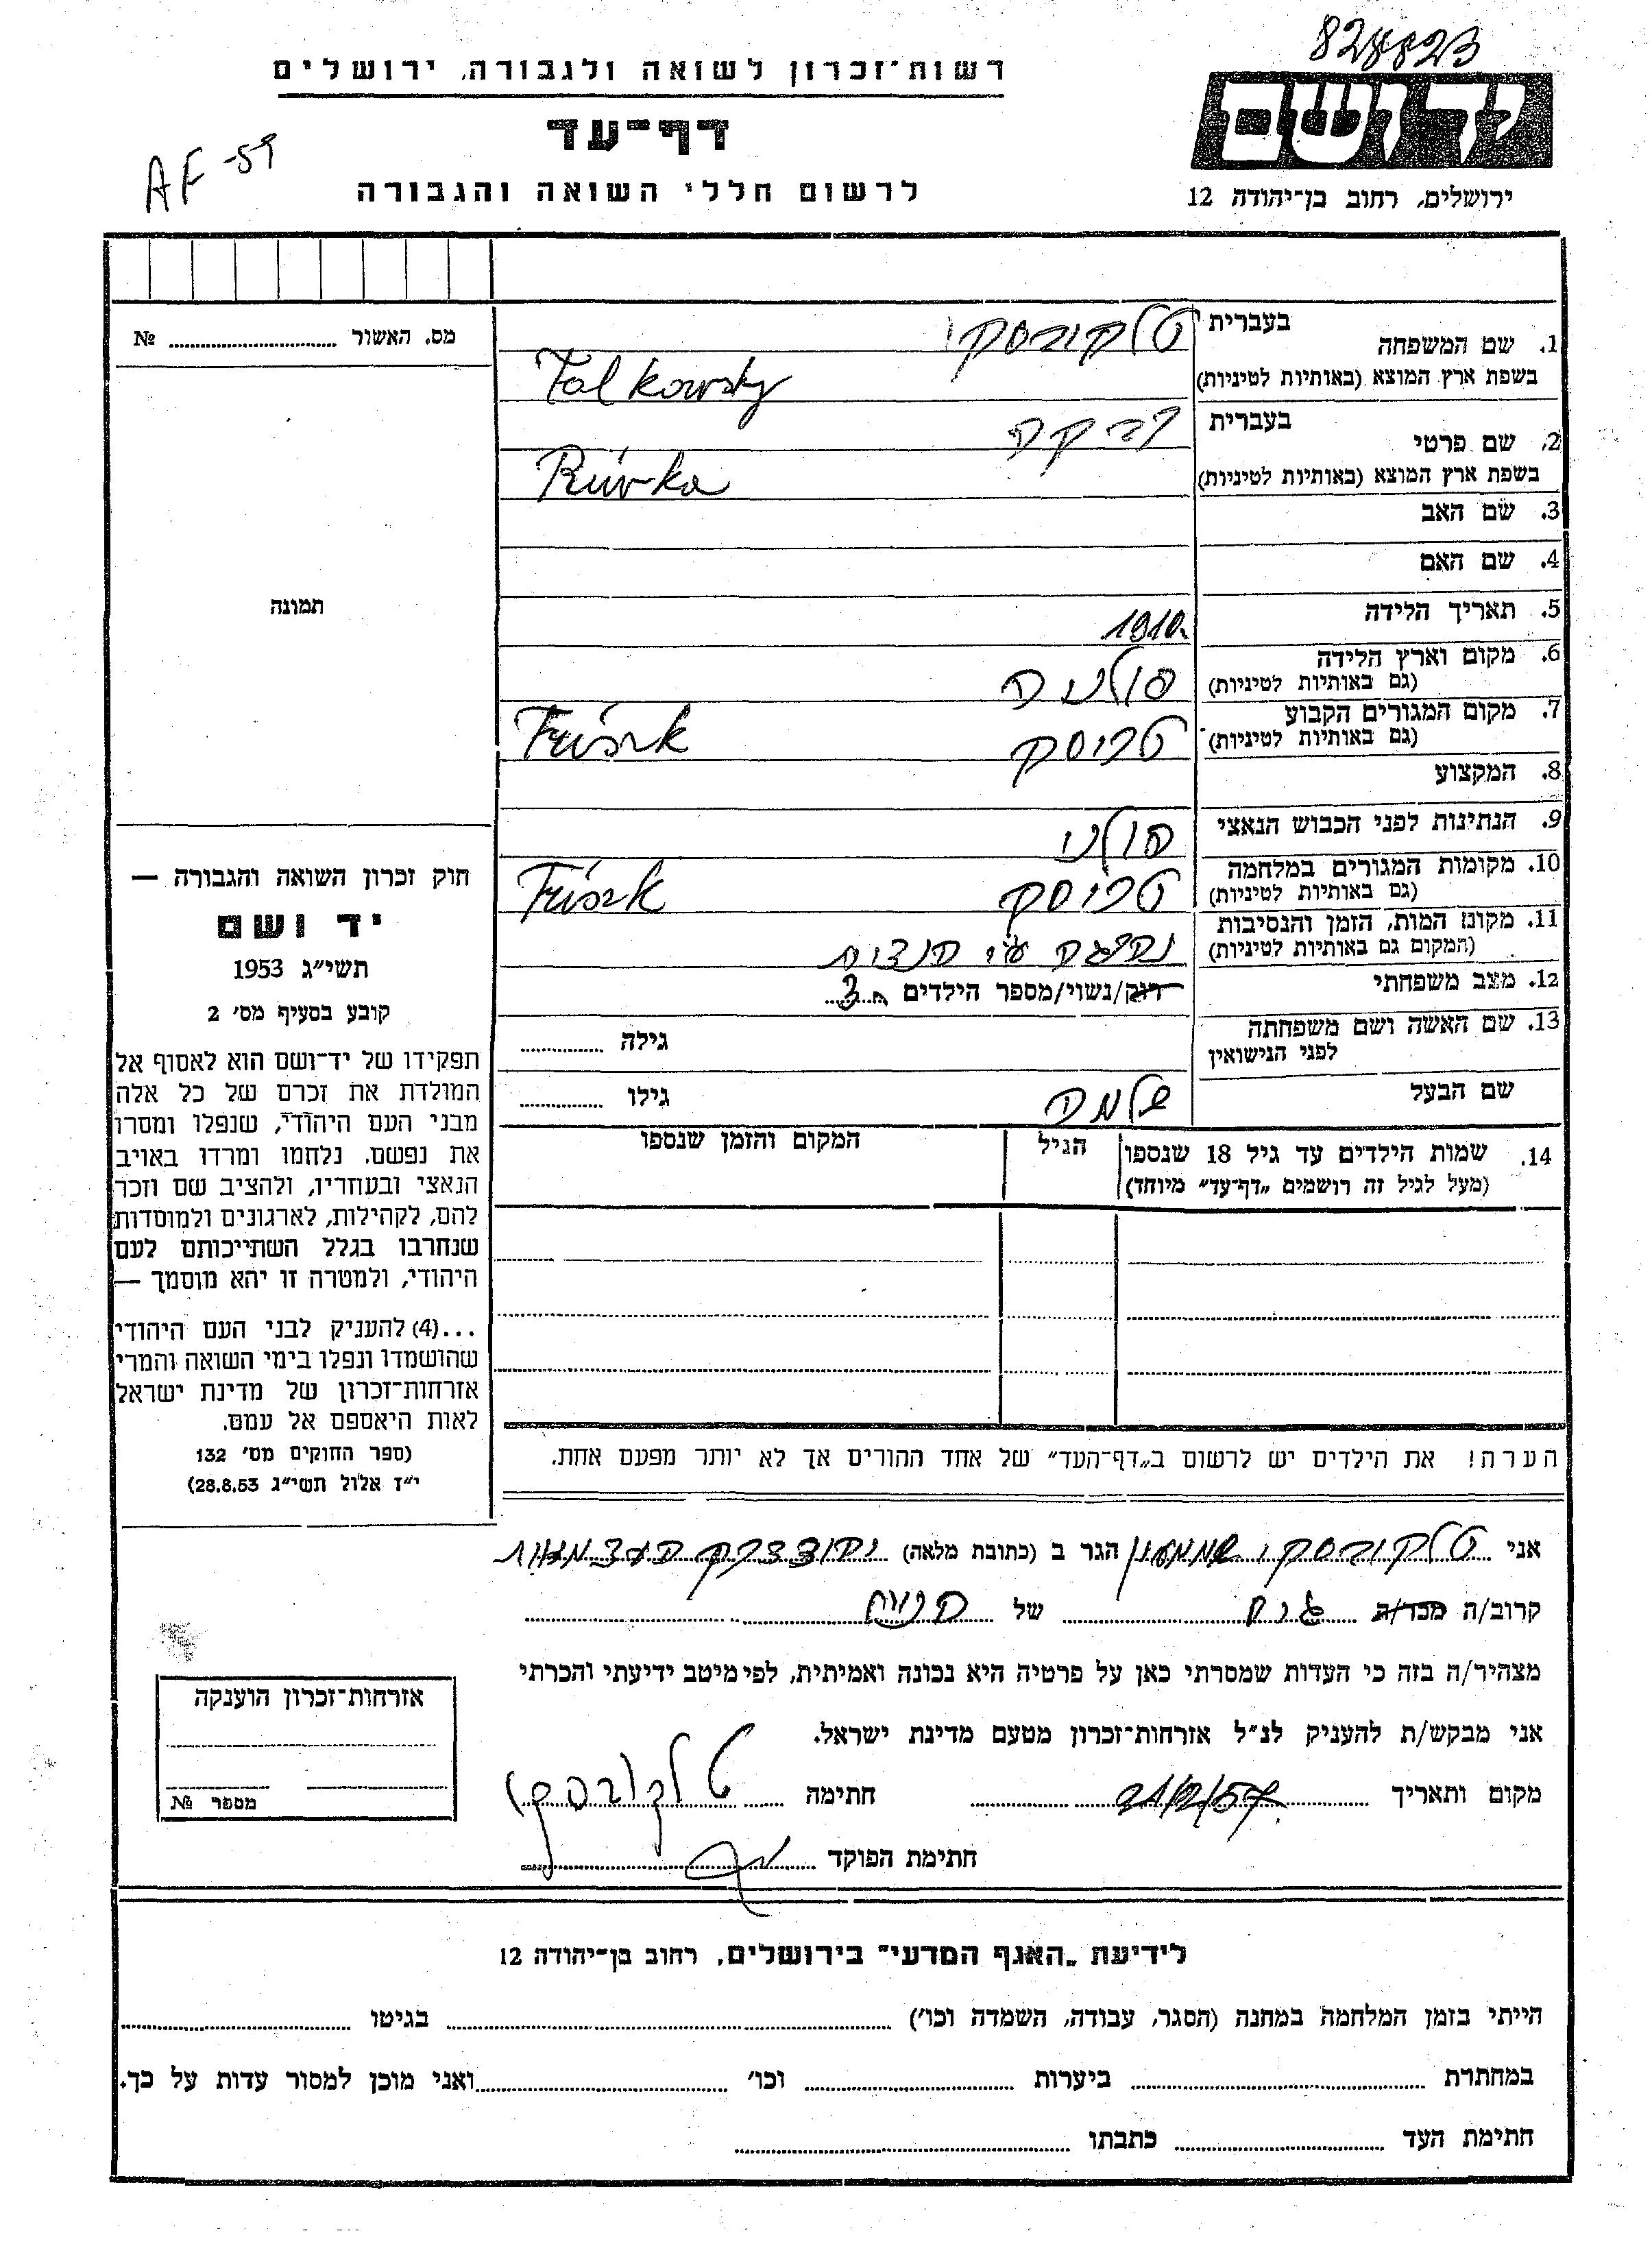 828823
רשות־זכרון לשואה ולגבורה, ירושלים
ידושם
דף־עד
AF-59
לרשום חללי השואה והגבורה
ירושלים, רחוב בן־יהודה 12
מס. האשור № 
1. שם המשפחה
בעברית
טלקובסקי
בשפת ארץ המוצא (באותיות לטיניות)
Talkowsky
2. שם פרטי
בעברית
רבקה
בשפת ארץ המוצא (באותיות לטיניות)
Riwka
3. שם האב
4. שם האם
תמונה
5. תאריך הלידה
1910
6. מקום וארץ הלידה
(גם באותיות לטיניות)
פולניה
7. מקום המגורים הקבוע
(גם באותיות לטיניות)
8. המקצוע
9. הנתינות לפני הכבוש הנאצי
פולני
10. מקומות המגורים במלחמה
(גם באותיות לטיניות)
11. מקום המות, הזמן והנסיבות
(המקום גם באותיות לטיניות)
נהרגה ע"י הנצים
12. מצב משפחתי
רוק/נשוי/מספר הילדים 3
13. שם האשה ושם משפחתה
לפני הנישואין
גילה
שם הבעל
שלמה
גילו
14. שמות הילדים עד גיל 18 שנספו
(מעל לגיל זה רושמים „דף־עד" מיוחד)
הגיל
המקום והזמן שנספו
חוק זכרון השואה והגבורה —
יד ושם
תשי"ג 1953
קובע בסעיף מס' 2
תפקידו של יד־ושם הוא לאסוף אל
המולדת את זכרם של כל אלה
מבני העם היהודי, שנפלו ומסרו
את נפשם, נלחמו ומרדו באויב
הנאצי ובעוזריו, ולהציב שם וזכר
להם, לקהילות, לארגונים ולמוסדות
שנחרבו בגלל השתייכותם לעם
היהודי, ולמטרה זו יהא מוסמך —
...(4) להעניק לבני העם היהודי
שהושמדו ונפלו בימי השואה והמרי
אזרחות־זכרון של מדינת ישראל
לאות היאספם אל עמם.
(ספר החוקים מס' 132
י"ז אלול תשי"ג 28.8.53)
הערה! את הילדים יש לרשום ב„דף־העד" של אחד ההורים אך לא יותר מפעם אחת.
אני טלקובסקי שמעון הגר ב (כתובת מלאה)
קרוב/ה מכר/ה גיס של
מצהיר/ה בזה כי העדות שמסרתי כאן על פרטיה היא נכונה ואמיתית, לפי מיטב ידיעתי והכרתי
אני מבקש/ת להעניק לנ"ל אזרחות־זכרון מטעם מדינת ישראל.
מקום ותאריך 21/2/57 חתימה טלקובסקי
חתימת הפוקד
אזרחות־זכרון הוענקה
מספר №
לידיעת „האגף המדעי" בירושלים, רחוב בן־יהודה 12
הייתי בזמן המלחמה במחנה (הסגר, עבודה, השמדה וכו') בגיטו
במחתרת ביערות וכו' ואני מוכן למסור עדות על כך.
חתימת העד כתבתו